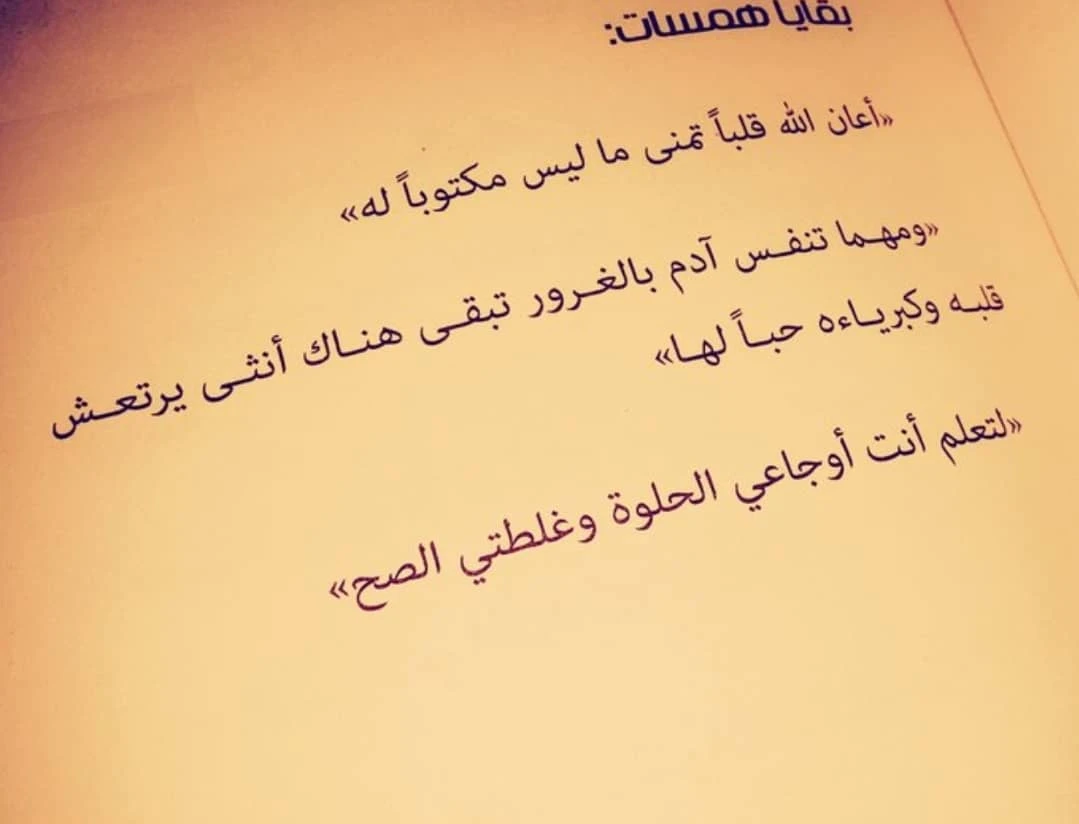 بقايا همسات:
«أعان الله قلباً تمنى ما ليس مكتوباً له»
«ومهما تنفس آدم بالغرور تبقى هناك أنثى يرتعش
قلبه وكبرياءه حباً لها»
«لتعلم أنت أوجاعي الحلوة وغلطتي الصح»